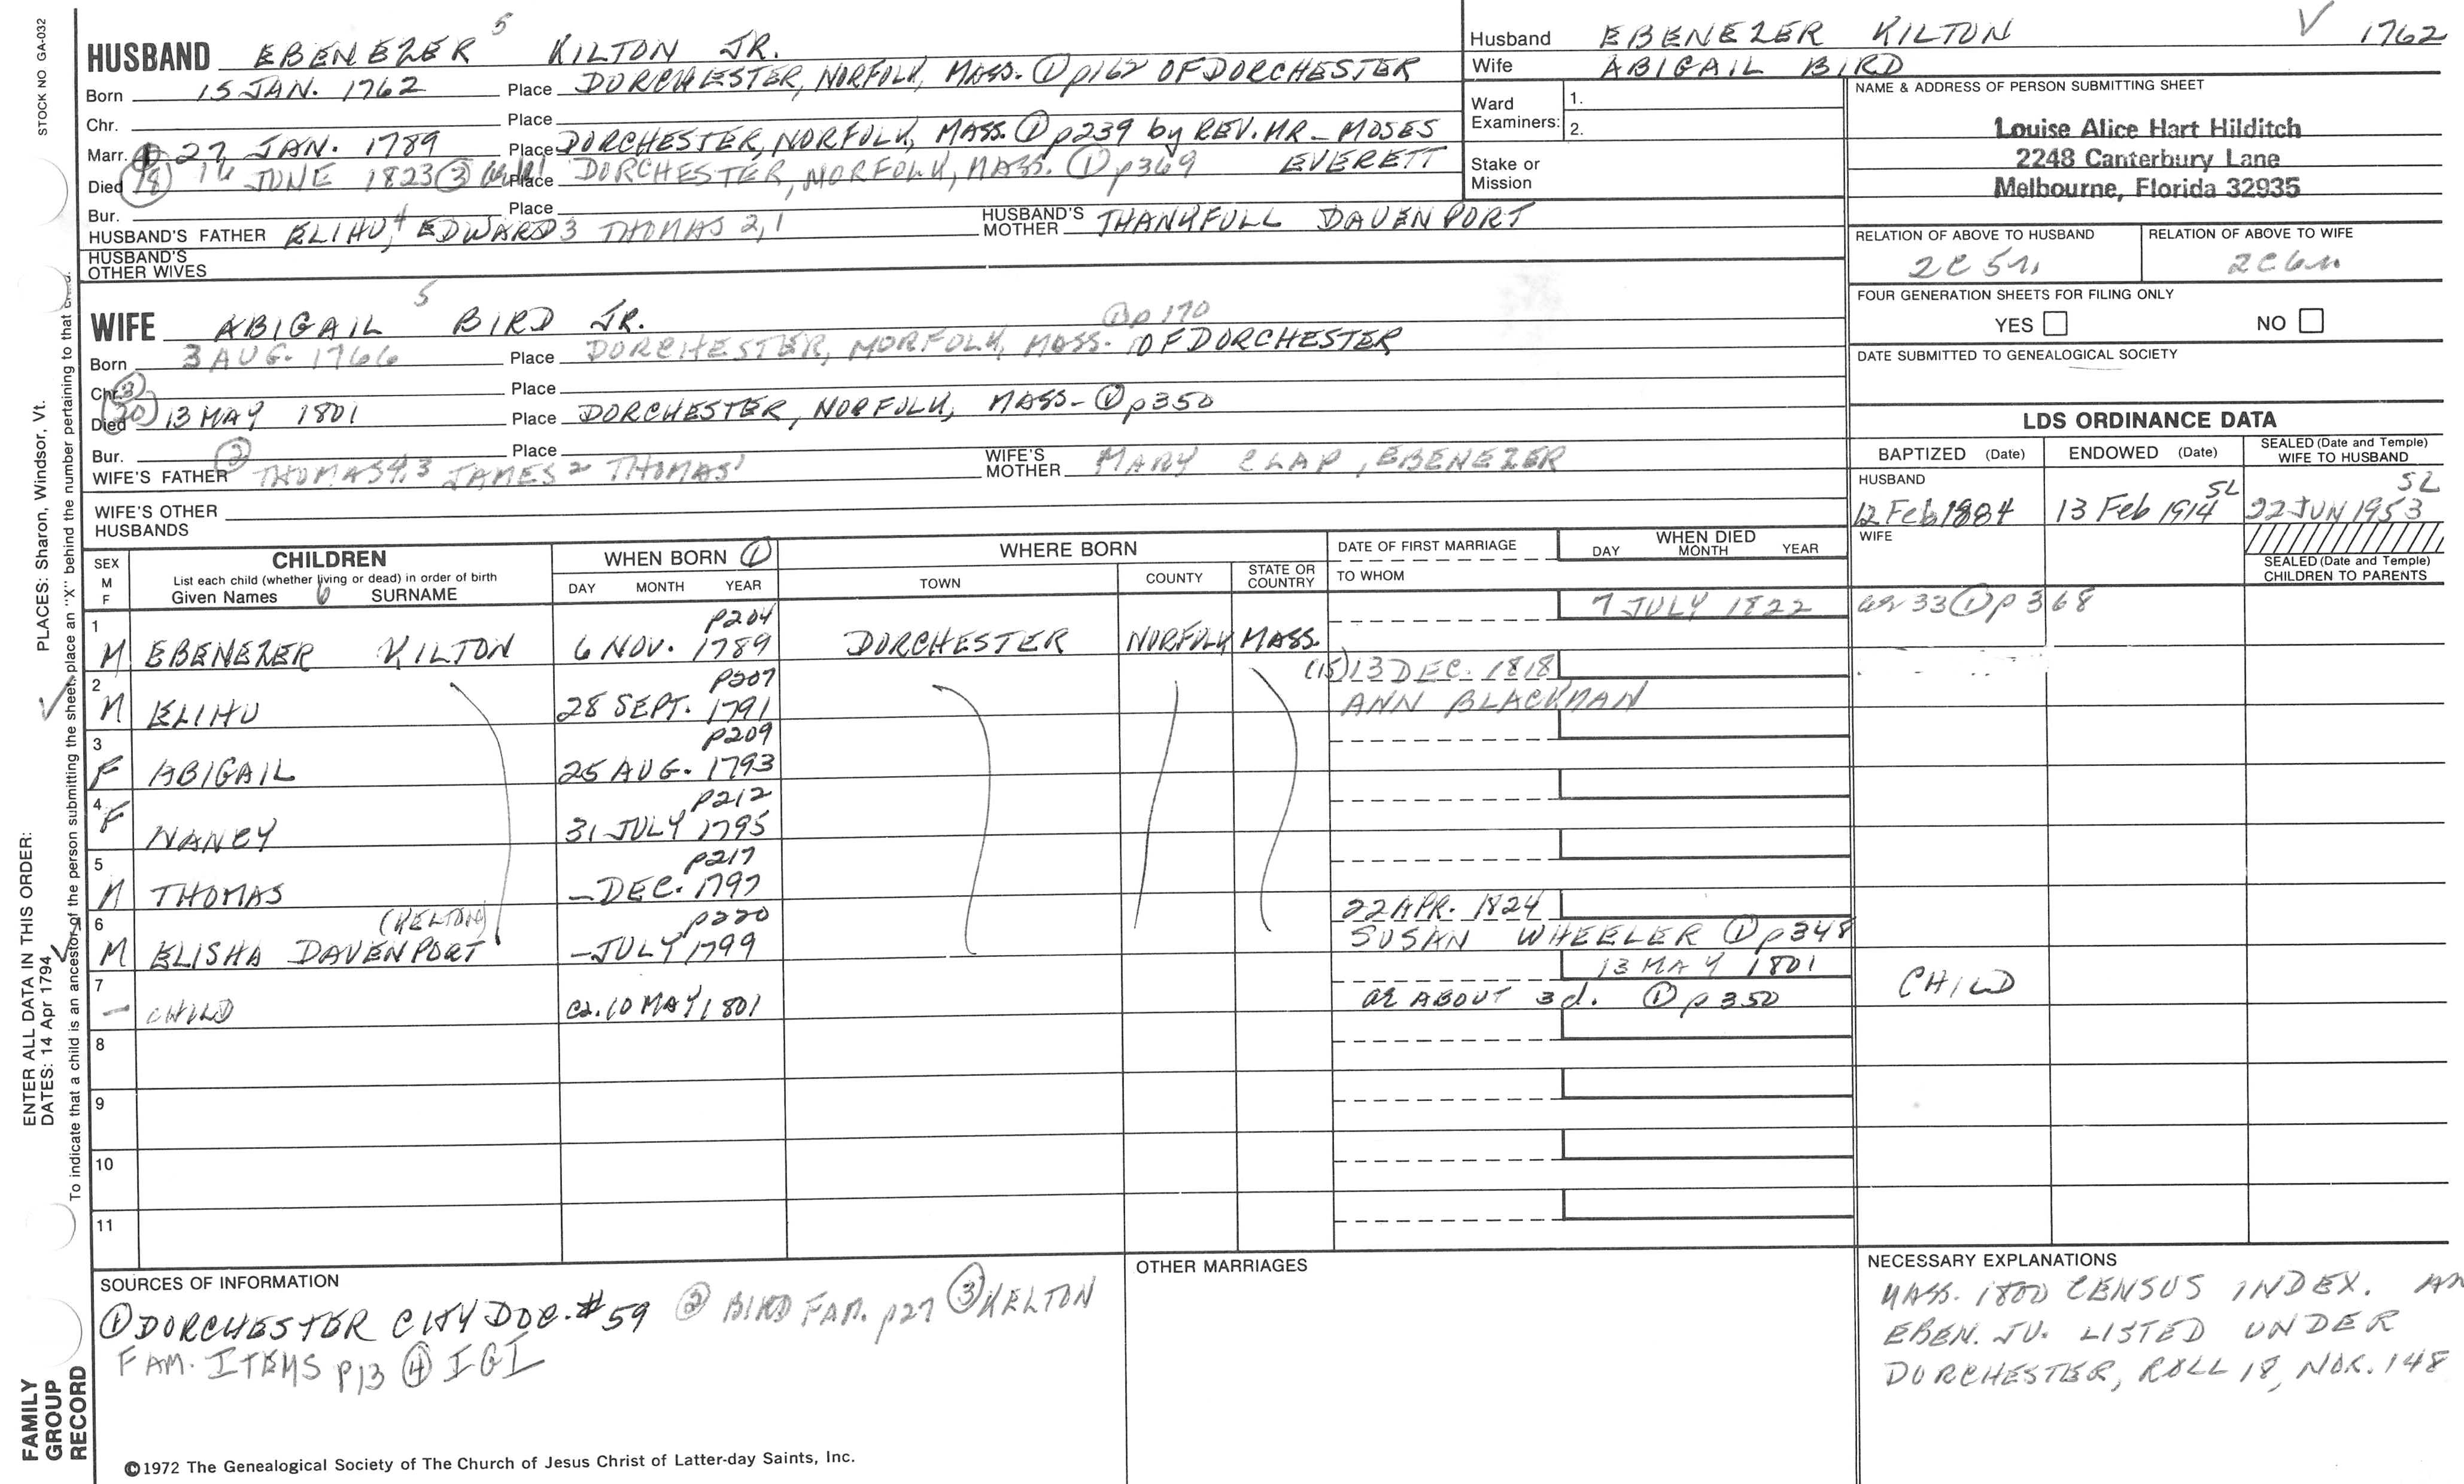 STOCK NO GA-032
HUSBAND EBENEZER 5 KILTON JR.
Born 15 JAN. 1762 Place DORCHESTER, NORFOLK, MASS. ① p162 OF DORCHESTER
Chr. Place
Marr. 27 JAN. 1789 Place DORCHESTER, NORFOLK, MASS. ① p239 by REV. MR. MOSES
EVERETT
Died (18) 16 JUNE 1823 ③ Place DORCHESTER, NORFOLK, MASS. ① p369
Bur. Place
HUSBAND'S FATHER ELIHU 4, EDWARD 3 THOMAS 2, 1 HUSBAND'S MOTHER THANKFULL DAVENPORT
HUSBAND'S OTHER WIVES
WIFE ABIGAIL 5 BIRD JR.
① p170
Born 3 AUG. 1766 Place DORCHESTER, NORFOLK, MASS. OF DORCHESTER
Chr. ③ Place
Died (20) 13 MAY 1801 Place DORCHESTER, NORFOLK, MASS- ① p350
Bur. Place
WIFE'S FATHER ② THOMAS 4, 3 JAMES 2 THOMAS 1 WIFE'S MOTHER MARY CLAP, EBENEZER
WIFE'S OTHER HUSBANDS
Husband EBENEZER KILTON V 1762
Wife ABIGAIL BIRD
Ward Examiners: 1.
2.
Stake or Mission
NAME & ADDRESS OF PERSON SUBMITTING SHEET
Louise Alice Hart Hilditch
2248 Canterbury Lane
Melbourne, Florida 32935
RELATION OF ABOVE TO HUSBAND RELATION OF ABOVE TO WIFE
2C 5r. 2C6r.
FOUR GENERATION SHEETS FOR FILING ONLY
YES NO
DATE SUBMITTED TO GENEALOGICAL SOCIETY
LDS ORDINANCE DATA
BAPTIZED (Date) ENDOWED (Date) SEALED (Date and Temple) WIFE TO HUSBAND
HUSBAND
12 Feb 1884 13 Feb 1914 SL 22 JUN 1953 SL
WIFE
SEALED (Date and Temple) CHILDREN TO PARENTS
SEX M F CHILDREN WHEN BORN ① WHERE BORN DATE OF FIRST MARRIAGE WHEN DIED
List each child (whether living or dead) in order of birth
Given Names 6 SURNAME DAY MONTH YEAR TOWN COUNTY STATE OR COUNTRY TO WHOM DAY MONTH YEAR
p204 7 JULY 1822 ae 33 ① p 368
1 M EBENEZER KILTON 6 NOV. 1789 DORCHESTER NORFOLK MASS.
p207 (15) 13 DEC. 1818
2 M ELIHU 28 SEPT. 1791 ANN BLACKMAN
p209
3 F ABIGAIL 25 AUG. 1793
p212
4 F NANCY 31 JULY 1795
p217
5 M THOMAS —DEC. 1797
(KELTON) p220 22 APR. 1824
6 M ELISHA DAVENPORT —JULY 1799 SUSAN WHEELER ① p348
13 MAY 1801
7 — CHILD ca. 10 MAY 1801 ae ABOUT 3 d. ① p 350 CHILD
8
9
10
11
SOURCES OF INFORMATION
① DORCHESTER CITY DOC. #59 ② BIRD FAM. p27 ③ KELTON
FAM. ITEMS p13 ④ IGI
OTHER MARRIAGES
NECESSARY EXPLANATIONS
MASS. 1800 CENSUS INDEX. AN
EBEN. JU. LISTED UNDER
DORCHESTER, ROLL 18, NOR. 148
©1972 The Genealogical Society of The Church of Jesus Christ of Latter-day Saints, Inc.
FAMILY GROUP RECORD
ENTER ALL DATA IN THIS ORDER:
DATES: 14 Apr 1794
PLACES: Sharon, Windsor, Vt.
To indicate that a child is an ancestor of the person submitting the sheet, place an "X" behind the number pertaining to that